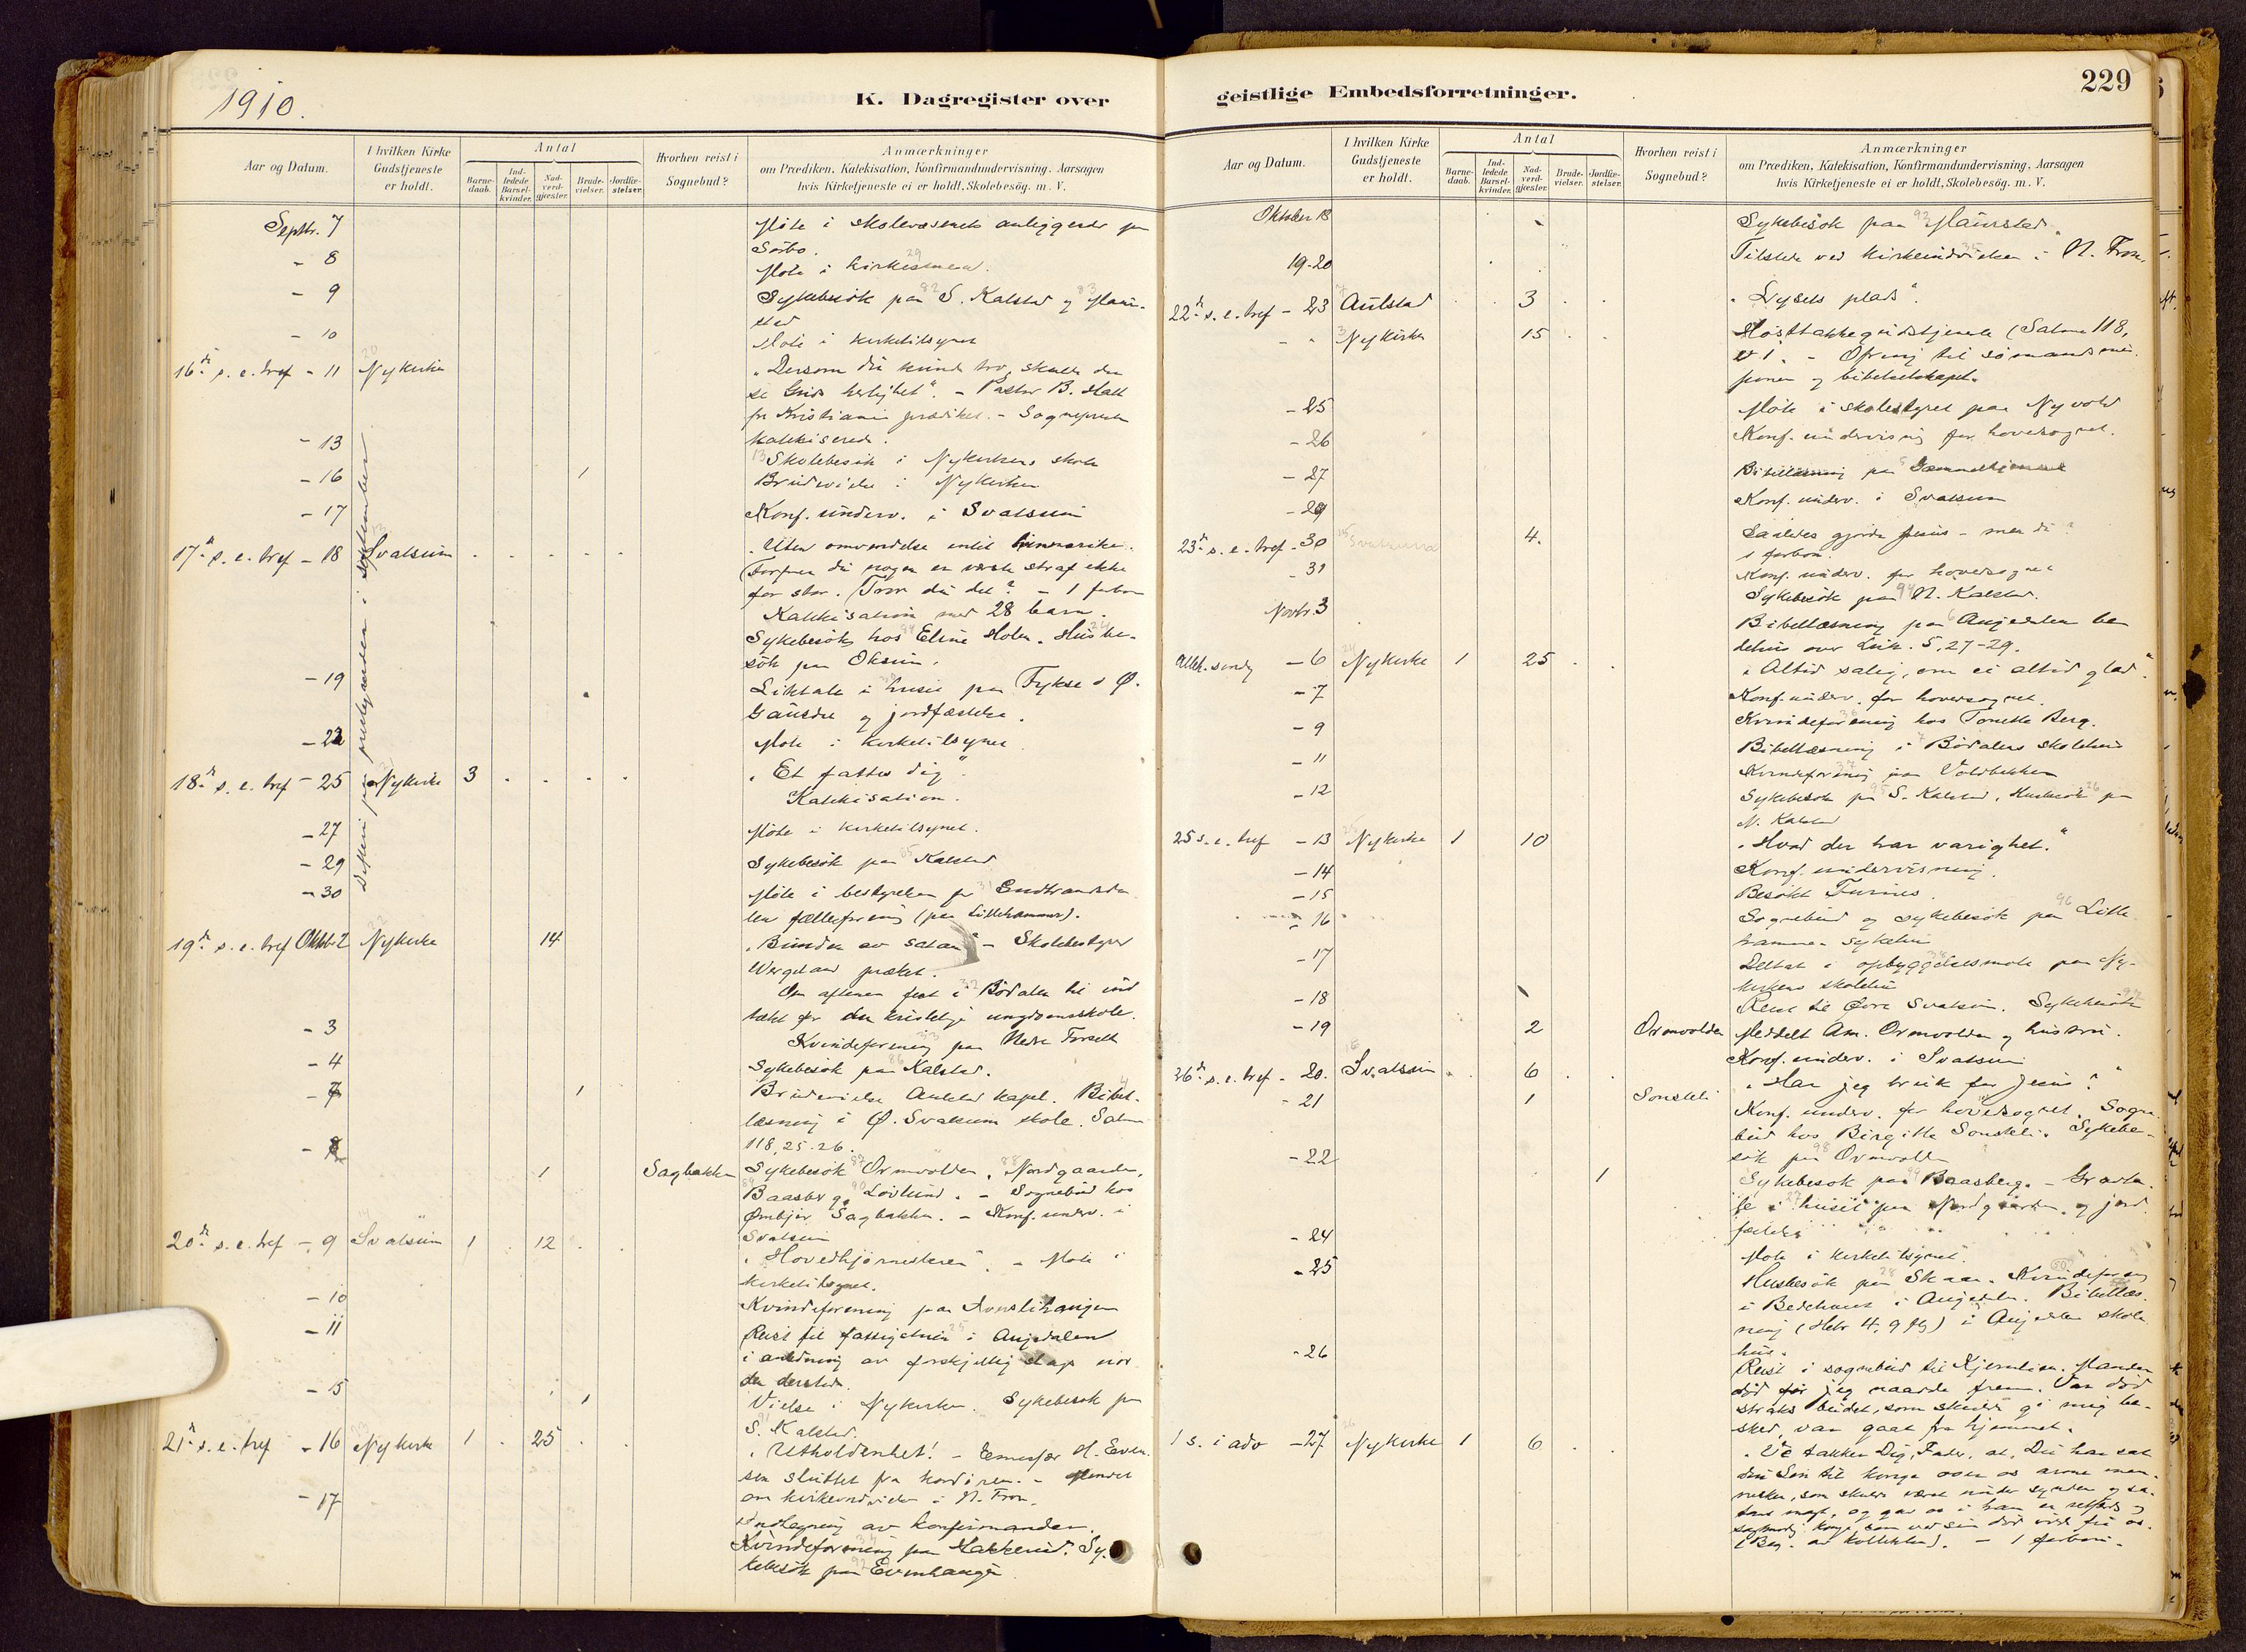 1910.
K. Dagregister over
Aar og Datum.
I hvilken Kirke Gudstjeneste er holdt.
Antal
Barne-daab.
Ind-ledede Barsel-kvinder.
Nad-verd-gjæster.
Brude-vielser.
Jordfæ-stelser.
Hvorhen reist i Sognebud?
Anmærkninger
om Prædiken, Katekisation, Konfirmandundervisning, Aarsagen
hvis Kirketjeneste ei er holdt, Skolebesög. m. V.
Septbr. 7 Møte i skolevæsenets anliggender paa
Sørbo.
- 8 Møte i kirkesmea.
- 9 Sykebesøk paa S. Kalstad og Maur-
stad
- 10 Møte i kirketilsynet
16de s. e. tref - 11 Nykirke „Dersom du kunde tro, skulde du
se Guds herlighet“. - Pastor B. Hall
fr Kristiania prædiket. - Sogneprest
katekiserede.
- 13 Skolebesøk i Nykirkens skole
- 16 1 Brudevielse i Nykirken
- 17 Konf. underv. i Svatsum
17de s. e. tref - 18 Svatsum „Uten omvendelse intet himmerike.
for stor. (Tror du det? - 1 forbøn
Katekisation med 28 barn.
Sykebesøk hos Eline Holen. Husbe-
søk paa Oksum.
- 19 Liktale i huset paa Fykse i Ø.
Gausdal og jordfæstelse.
- 22 Møte i kirketilsynet
18de s. e. tref - 25 Nykirke 3 „Et fattes dig“.
Katekisation.
- 27 Møte i kirketilsynet.
- 29 Sykebesøk paa Kalstad
- 30 Møte i bestyrelsen for Gudbrandsda-
len fællesforening (paa Lillehammer).
19de s. e. tref Oktbr. 2 Nykirke 14 „Bunden av satan“ - Skolebestyrer
Wergeland præket.
Om aftenen fest i Bødalen til ind
tækt for den kristelige ungdomsskole.
- 3 Kvindeforening paa Nedre Forseth
- 4 Sykebesøk paa Kalstad.
- 7 1 Brudevielse Aulstad kapel. Bibel-
læsning i Ø. Svatsum skole. Salm
118, 25. 26.
- 8 1 Sagbakken Sykebesøk Ormvolden, Nordgaarden,
Baasberg, Løvlund. - Sognebud hos
Sagbakken. - Konf. underv. i
Svatsum
20de s. e. tref - 9 Svatsum 1 12 „Hovedhjørnestenen“. - Møte i
kirketilsynet.
- 10 Kvindeforening paa
- 11 Reist til i Augedalen
i anledning av forskjellig
den dersteds.
- 15 1 Vielse i Nykirken. Sykebesøk paa
S. Kalstad.
21de s. e. tref - 16 Nykirke 1 25 „Utholdenhet! - Emissær H. Even-
sen sluttet fra kordøren. -
om kirkeindvielse i N. Fron.
- 17 Indtegning av konfirmander.
Kvindeforening paa Sy-
kebesøk paa Evenhaugen
geistlige Embedsforretninger.
229
Aar og Datum.
I hvilken Kirke Gudstjeneste er holdt.
Antal
Barne-daab.
Ind-ledede Barsel-kvinder.
Nad-verd-gjæster.
Brude-vielser.
Jordfæ-stelser.
Hvorhen reist i Sognebud?
Anmærkninger
om Prædiken, Katekisation, Konfirmandundervisning, Aarsagen
hvis Kirketjeneste ei er holdt, Skolebesög. m. V.
Oktober 18 Sykebesøk paa Maurstad
19-20 Tilstede ved kirkeindvielsen i N. Fron.
22de s. e. tref - 23 Aulstad 3 „Lysets plads“.
Nykirke 15 Høsttakkegudstjeneste (Salme 118,
v 1. - Ofring til sømandsmis-
sionen og bibelselskapet.
- 25 Møte i skolestyret paa Nyvold
- 26 Konf. undervisning for hovedsognet.
- 27 Bibellæsning paa
- 29 Konf. underv. i Svatsum
23de s. e. tref - 30 Svatsum 4. Saaledes gjorde Jesus - men du?
1 forbøn.
- 31 Konf. underv. for hovedsognet
Novbr. 3 Sykebesøk paa N. Kalstad.
Bibellæsning paa Augedalen be
dehus over Luk. 5, 27-29.
Alleh. søndag - 6 Nykirke 1 25 „Altid salig, om ei altid glad“.
- 7 Konf. underv. for hovedsognet.
- 9 Kvindeforening hos Tomette Berg.
- 11 Bibellæsning i Bødalens skolehus
Kvindeforening paa Voldbakken
- 12 Sykebesøk paa S. Kalstad. Husbesøk paa
N. Kalstad
25 s. e. tref - 13 Nykirke 1 10 „Hvad der har varighet.“
- 14 Konf. undervisning.
- 15 Besøkt Furnes.
- 16 Sognebud og sykebesøk paa Lille-
hammer sykehus
- 17 Deltat i opbyggelsesmøte paa Ny-
kirkens skolehus
- 18 Reist til Øvre Svatsum. Sykebesøk
- 19 2 Ormvolden Meddelt Am. Ormvolden og hustru.
Konf. underv. i Svatsum
26de s. e. tref - 20. Svatsum 6 „Har jeg bruk for Jesus?“
- 21 1 Sonsteli Konf. underv. for hovedsognet. Sogne-
bud hos Birgitte Sonsteli. Sykebe-
søk paa Ormvolden
- 22 1 Sykebesøk paa Baasberg. -
i huset paa Nordgaarden og jord
- 24 Møte i kirketilsynet.
- 25 Husbesøk paa Skaar. Kvindeforening
i Bedehuset i Augedalen. Bibellæs-
ning (Hebr 4, 9 flg) i Augedalen skole
hus.
- 26 Reist i sognebud til Kjernlien. Manden
død før jeg naadde frem. Var død
straks budet, som skulde gi mig be-
sked, var gaat fra hjemmet.
1 s. i adv - 27 Nykirke 1 6 „Vi takker Dig, Fader, at Du har sat
din Søn til konge over os arme men-
nesker, som skulde været under synden og sa-
tans magt, og gav os i ham en retfærdig og
konge, som ved sin død vilde fri os.
- 1 forbøn.